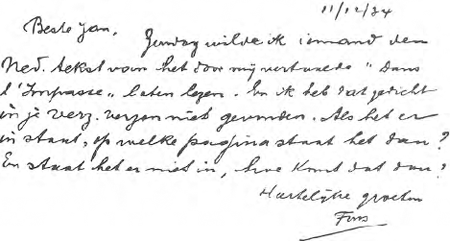 11/12/84
Beste Jan,
Zondag wilde ik iemand den
Ned. tekst van het door mij vertaalde "Dans
l'Impasse" laten lezen. En ik heb dat gedicht
in je verz. verzen niet gevonden. Als het er
in staat, op welke pagina staat het dan?
En staat het er niet in, hoe komt dat dan?
Hartelijke groeten